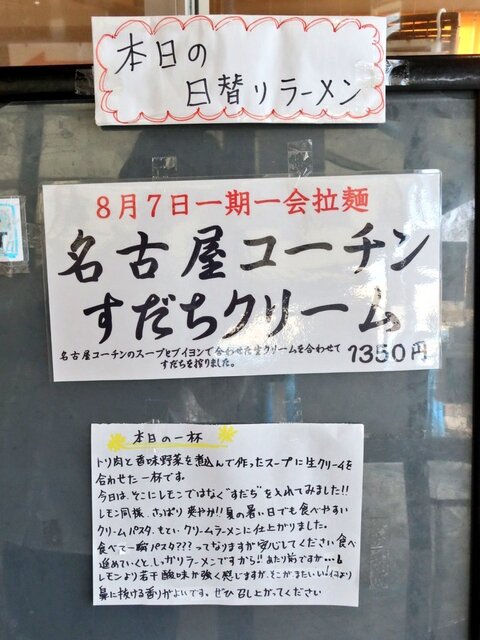 本日の
日替りラーメン
8月7日一期一会拉麺
名古屋コーチン
すだちクリーム
名古屋コーチンのスープとブイヨンで合わせた生クリームを合わせて
すだちを搾りました。
1350円
本日の一杯
トリ肉と香味野菜を煮込んで作ったスープに生クリームを
合わせた一杯です。
今日は、そこにレモンではなく"すだち"を入れてみました!!
レモン同様、さっぱり爽やか!!夏の暑い日でも食べやすい
クリームパスタ、もとい、クリームラーメンに仕上がりました。
食べて一瞬パスタ???ってなりますが安心してください食べ
進めていくと、しっかりラーメンですから!!あたり前ですが…
レモンより若干酸味が強く感じますが、そこがまたいい!
鼻に抜ける香りがよいです。ぜひ召し上がってください